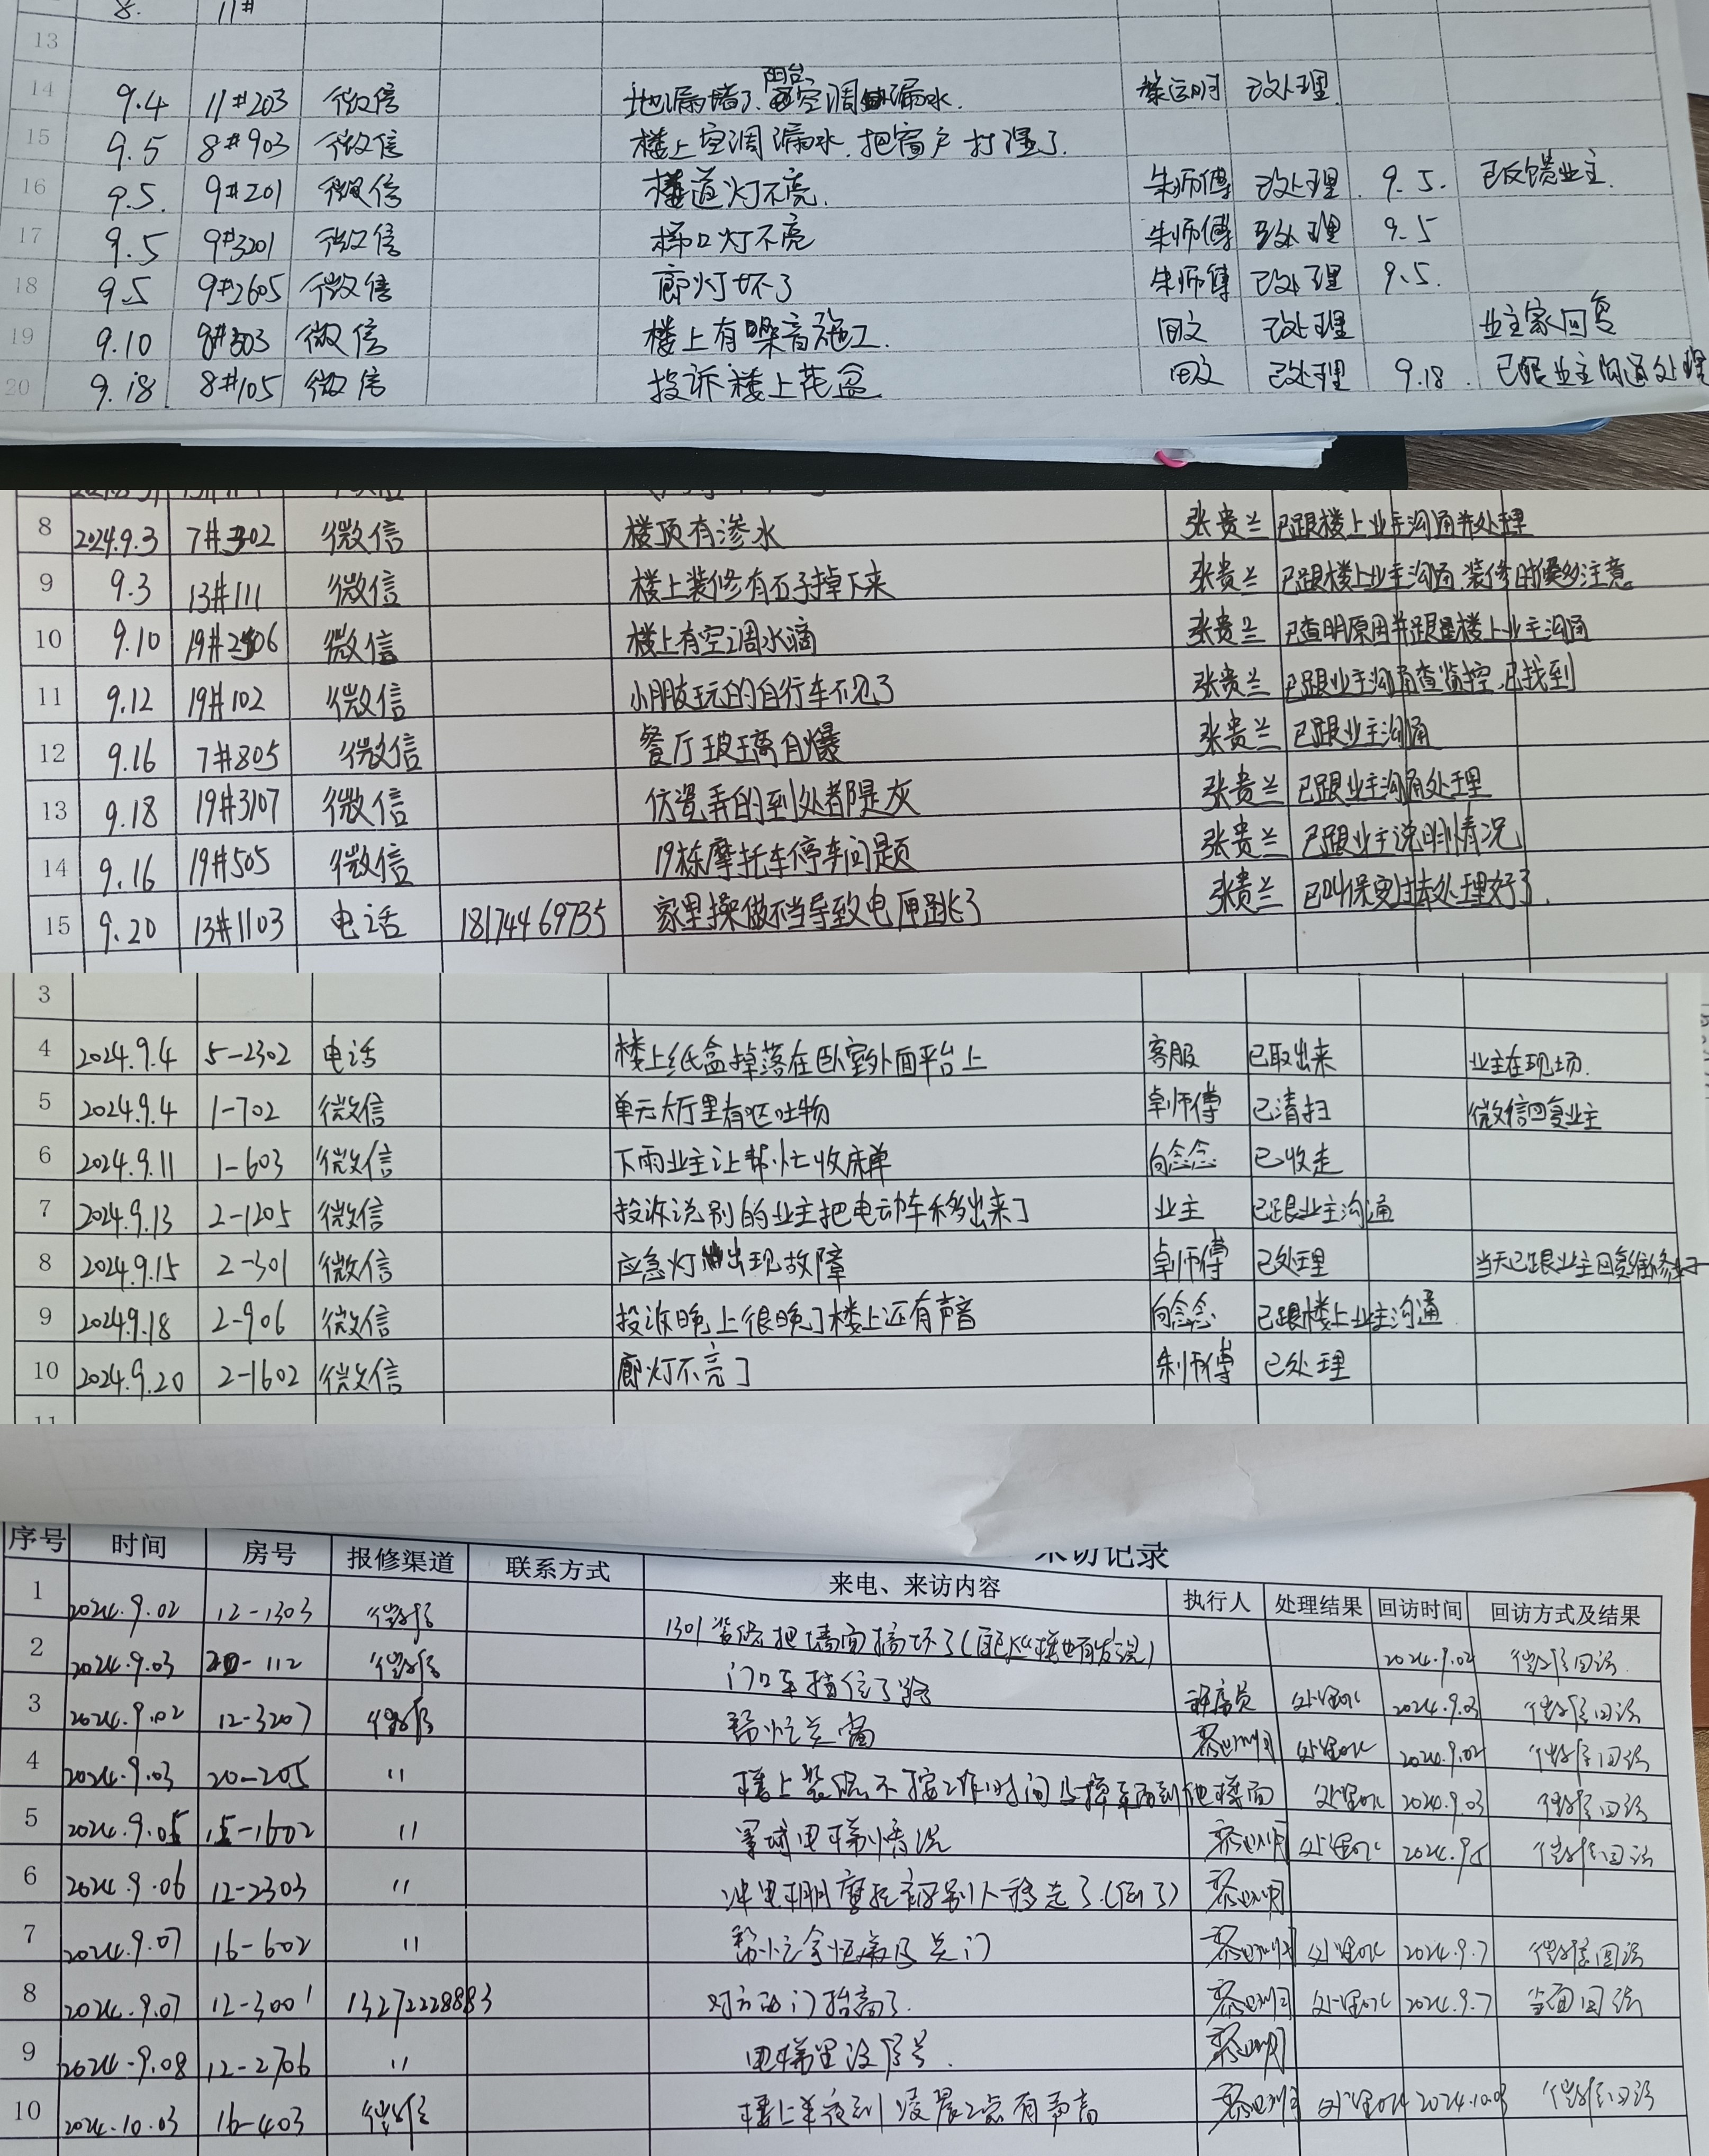 8. 11#
13
14 9.4 11#203 微信 地漏堵了.阳台空调漏水. 已处理
15 9.5 8#903 微信 楼上空调漏水.把窗户打湿了.
16 9.5. 9#201 微信 楼道灯不亮. 朱师傅 已处理. 9.5. 已反馈业主.
17 9.5 9#3201 微信 梯口灯不亮 朱师傅 已处理 9.5
18 9.5 9#2605 微信 廊灯坏了 朱师傅 已处理 9.5.
19 9.10 8#303 微信 楼上有噪音施工. 田文 已处理 业主家回复
20 9.18 8#105 微信 投诉楼上花盆 田文 已处理 9.18. 已跟业主沟通处理
8 2024.9.3 7#302 微信 楼顶有渗水 张贵兰 已跟楼上业主沟通并处理
9 9.3 13#111 微信 楼上装修有石子掉下来 张贵兰 已跟楼上业主沟通.装修时候多注意
10 9.10 19#2506 微信 楼上有空调水滴 张贵兰 已查明原因并跟楼上业主沟通
11 9.12 19#102 微信 小朋友玩的自行车不见了 张贵兰 已跟业主沟通查监控.已找到
12 9.16 7#805 微信 餐厅玻璃自爆 张贵兰 已跟业主沟通
13 9.18 19#3107 微信 仿瓷弄的到处都是灰 张贵兰 已跟业主沟通处理
14 9.16 19#505 微信 19栋摩托车停车问题 张贵兰 已跟业主说明情况
15 9.20 13#1103 电话 18174469735 家里操做不当导致电闸跳了 张贵兰 已叫保安过去处理好了.
3
4 2024.9.4 5-2302 电话 楼上纸盒掉落在卧室外面平台上 客服 已取出来 业主在现场.
5 2024.9.4 1-702 微信 单元大厅里有呕吐物 卓师傅 已清扫 微信回复业主
6 2024.9.11 1-603 微信 下雨业主让帮忙收床单 向念念 已收走
7 2024.9.13 2-1205 微信 投诉说别的业主把电动车移出来了 业主 已跟业主沟通
8 2024.9.15 2-301 微信 应急灯出现故障 卓师傅 已处理 当天已跟业主回复维修好
9 2024.9.18 2-906 微信 投诉晚上很晚了楼上还有声音 向念念 已跟楼上业主沟通
10 2024.9.20 2-1602 微信 廊灯不亮了 朱师傅 已处理
11
来访记录
序号 时间 房号 报修渠道 联系方式 来电、来访内容 执行人 处理结果 回访时间 回访方式及结果
1 2024.9.02 12-1303 微信 1301装修把墙面搞坏了 2024.9.02 微信回访
2 2024.9.03 20-112 微信 门口车挡住了路 处理OK 2024.9.03 微信回访
3 2024.9.02 12-3207 微信 帮忙关窗 处理OK 2024.9.02 微信回访
4 2024.9.03 20-205 " 楼上装修不按工作时间 处理OK 2024.9.03 微信回访
5 2024.9.05 15-1602 " 电梯情况 处理OK 2024.9.5 微信回访
6 2024.9.06 12-2303 " 摩托车被别人移走了(倒了)
7 2024.9.07 16-602 " 处理OK 2024.9.7 微信回访
8 2024.9.07 12-3001 13272228883 处理OK 2024.9.7 当面回访
9 2024.9.08 12-2706 " 电梯里没信号.
10 2024.10.03 16-403 微信 楼上半夜到凌晨2点有声音 处理OK 2024.10.03 微信回访